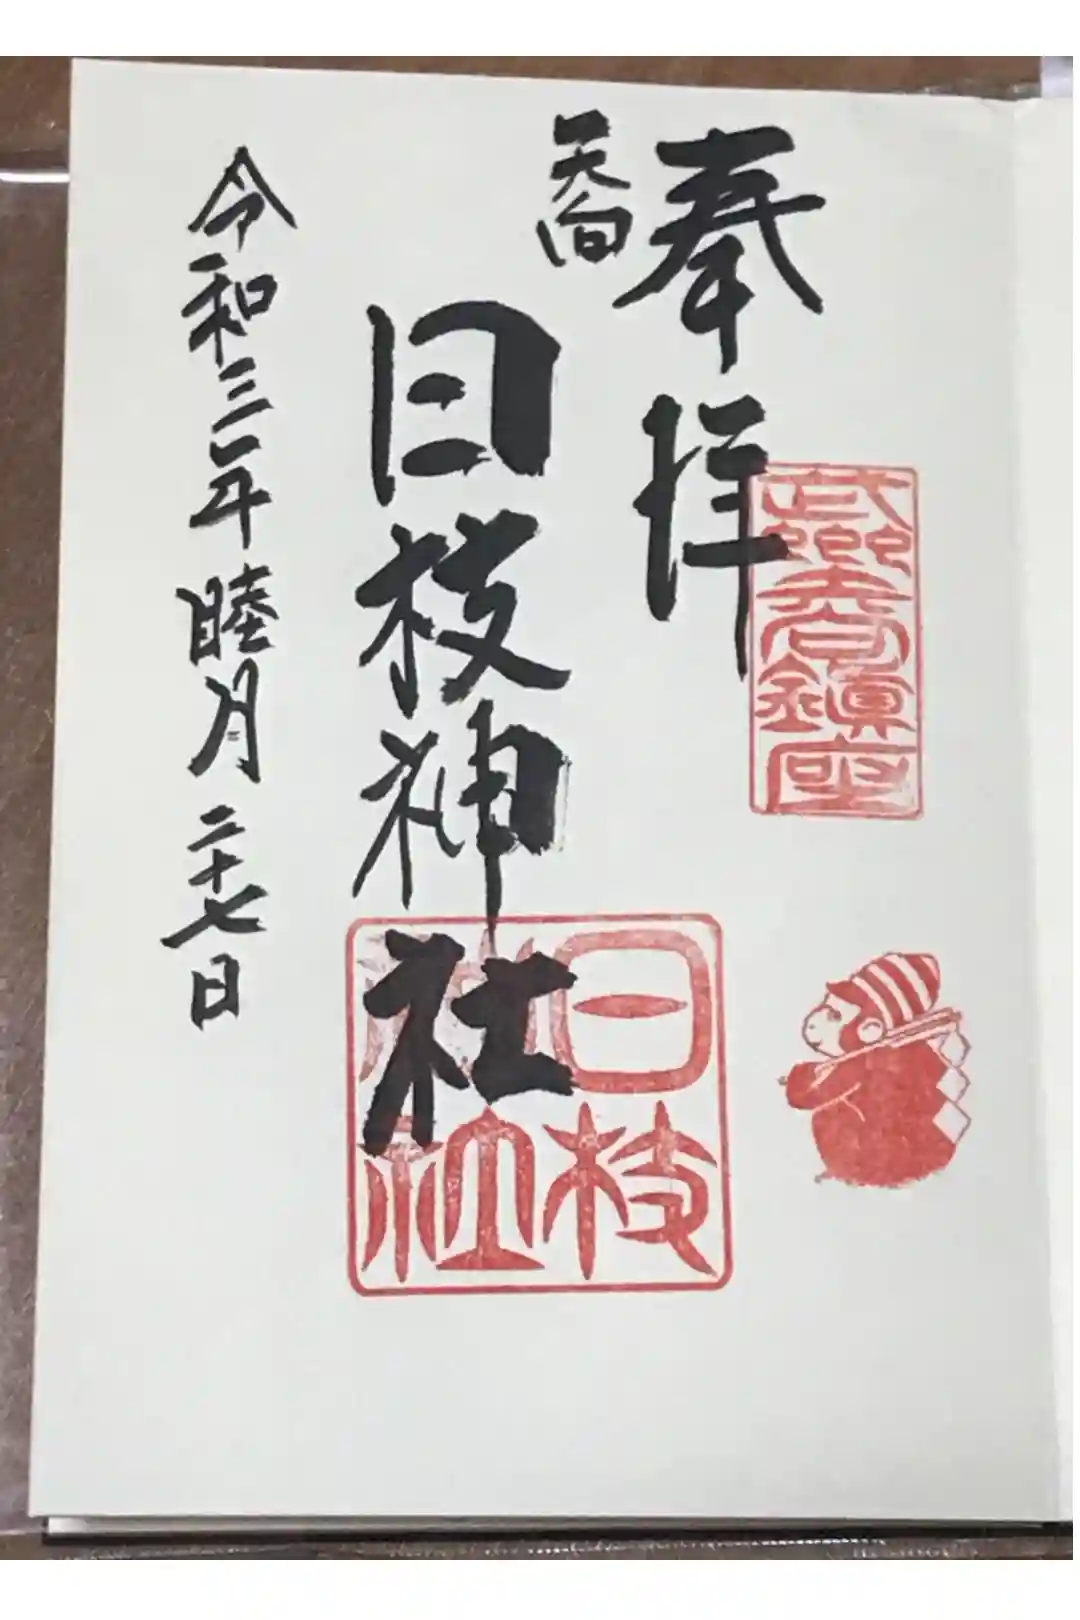 奉拝
武州鎮座
日枝神社
日枝神社
令和三年睦月二十七日